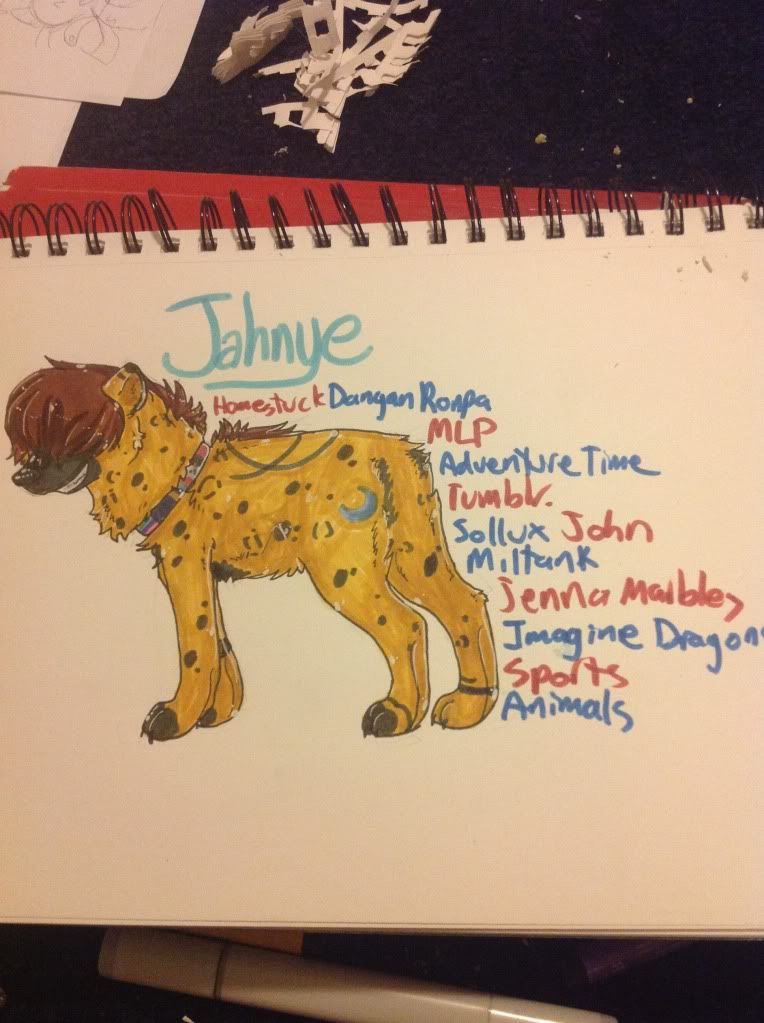 Jahnye
Homestuck Dangan Ronpa
MLP
Adventure Time
Tumblr.
Sollux John
Miltank
Jenna Marbles
Imagine Dragons
Sports
Animals